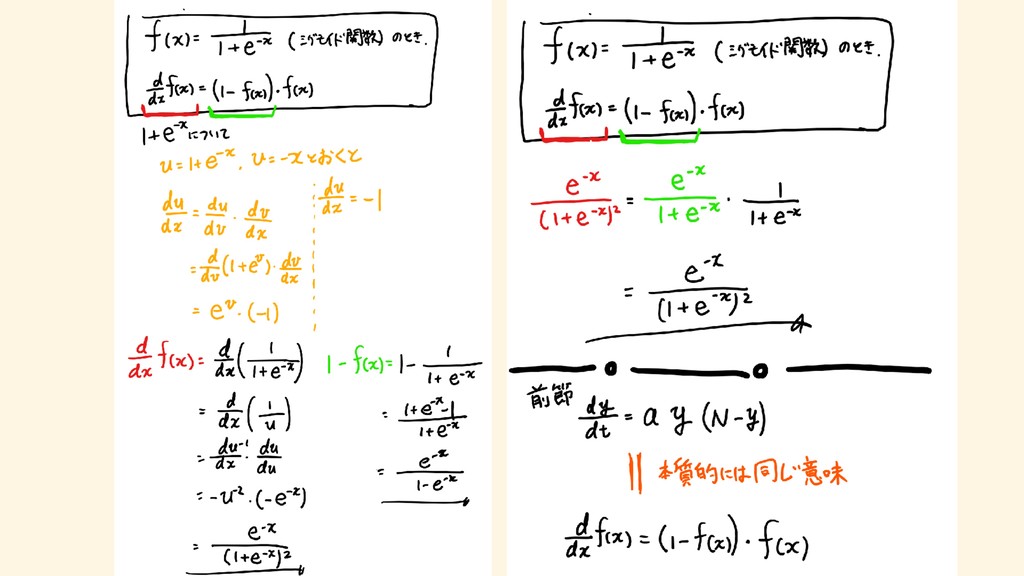 f(x) = 1/(1+e^-x) (シグモイド関数) のとき.
d/dx f(x) = (1 - f(x))・f(x)
1+e^-x について
u = 1+e^-x, v = -x とおくと
du/dx = du/dv・dv/dx
= d/dv (1+e^v)・dv/dx
= e^v・(-1)
dv/dx = -1
d/dx f(x) = d/dx (1/(1+e^-x))
= d/dx (1/u)
= du^-1/dx・du/du
= -u^-2・(-e^-x)
= e^-x/(1+e^-x)^2
1 - f(x) = 1 - 1/(1+e^-x)
= (1+e^-x-1)/(1+e^-x)
= e^-x/(1-e^-x)
f(x) = 1/(1+e^-x) (シグモイド関数) のとき.
d/dx f(x) = (1 - f(x))・f(x)
e^-x/(1+e^-x)^2 = e^-x/(1+e^-x)・1/(1+e^-x)
= e^-x/(1+e^-x)^2
前節
dy/dt = a y (N-y)
|| 本質的には同じ意味
d/dx f(x) = (1-f(x))・f(x)